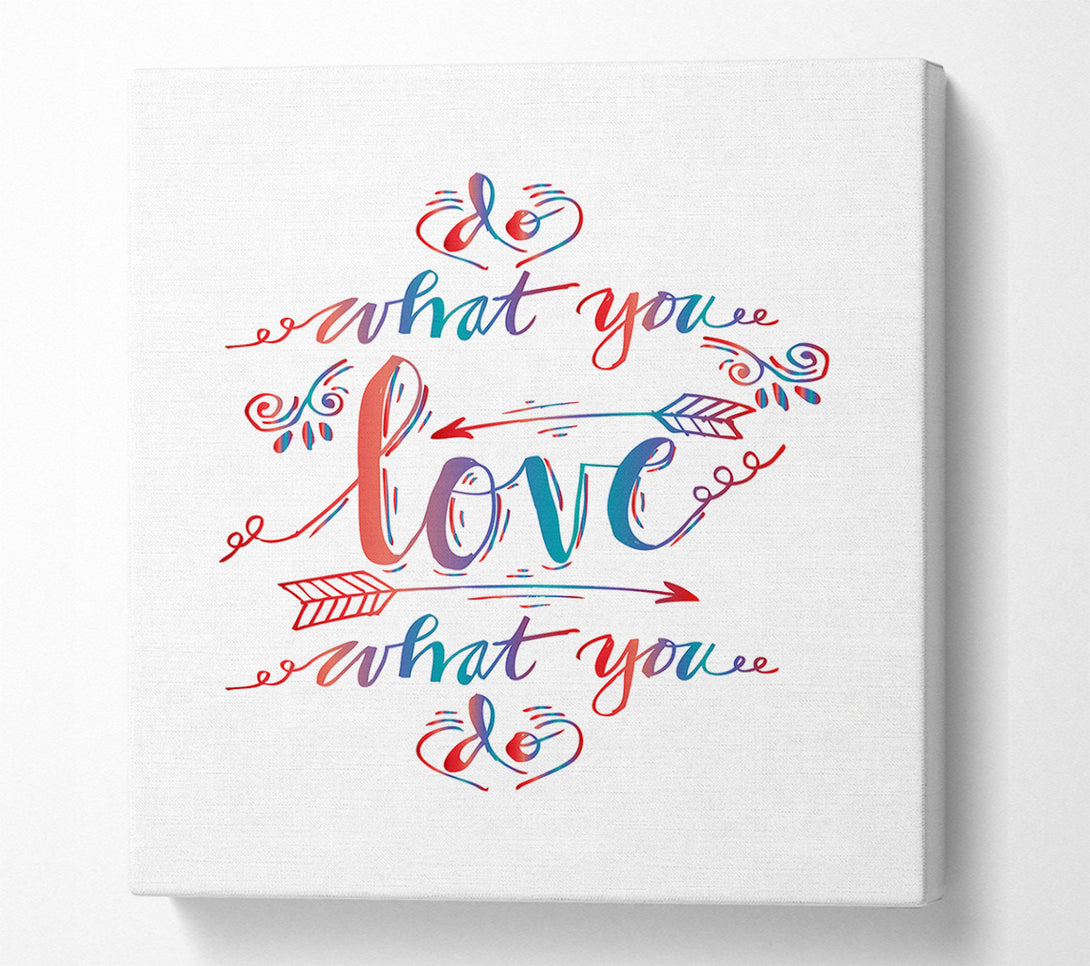 do
what you
love
what you
do